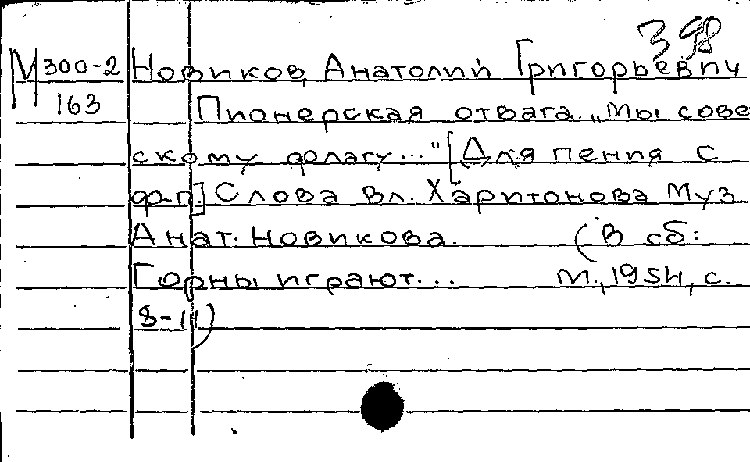 398
М 300-2 Новиков, Анатолий Григорьевич
163 Пионерская отвага „Мы сове
скому флагу..." [Для пения с
ф-п.] Слова Вл. Харитонова Муз
Анат. Новикова. (В сб:
Горны играют... М., 1954, с.
8-11)